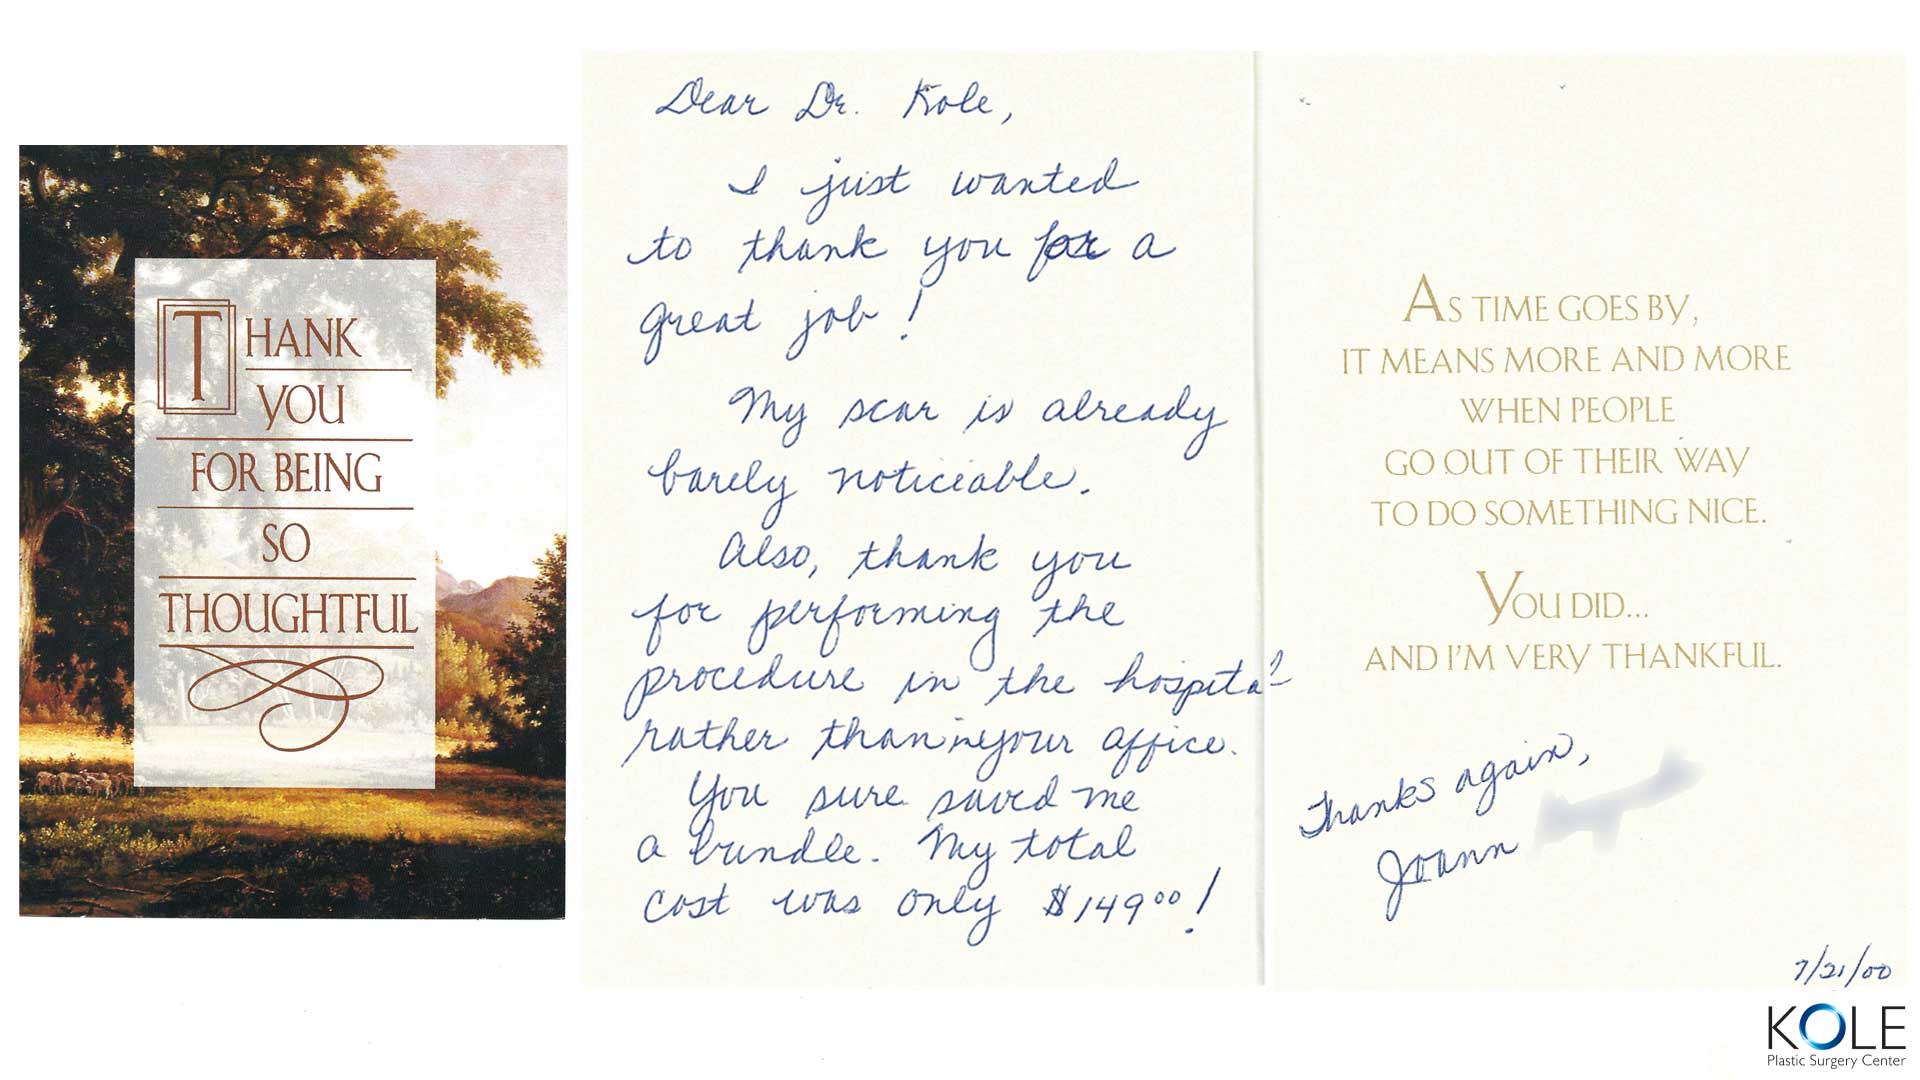 THANK
YOU
FOR BEING
SO
THOUGHTFUL
Dear Dr. Kole,
I just wanted
to thank you for a
great job!
My scar is already
barely noticeable.
Also, thank you
for performing the
procedure in the hospital
rather than in your office.
You sure saved me
a bundle. My total
cost was only $149.00!
AS TIME GOES BY,
IT MEANS MORE AND MORE
WHEN PEOPLE
GO OUT OF THEIR WAY
TO DO SOMETHING NICE.
YOU DID...
AND I'M VERY THANKFUL.
Thanks again,
Joann
7/21/00
KOLE
Plastic Surgery Center